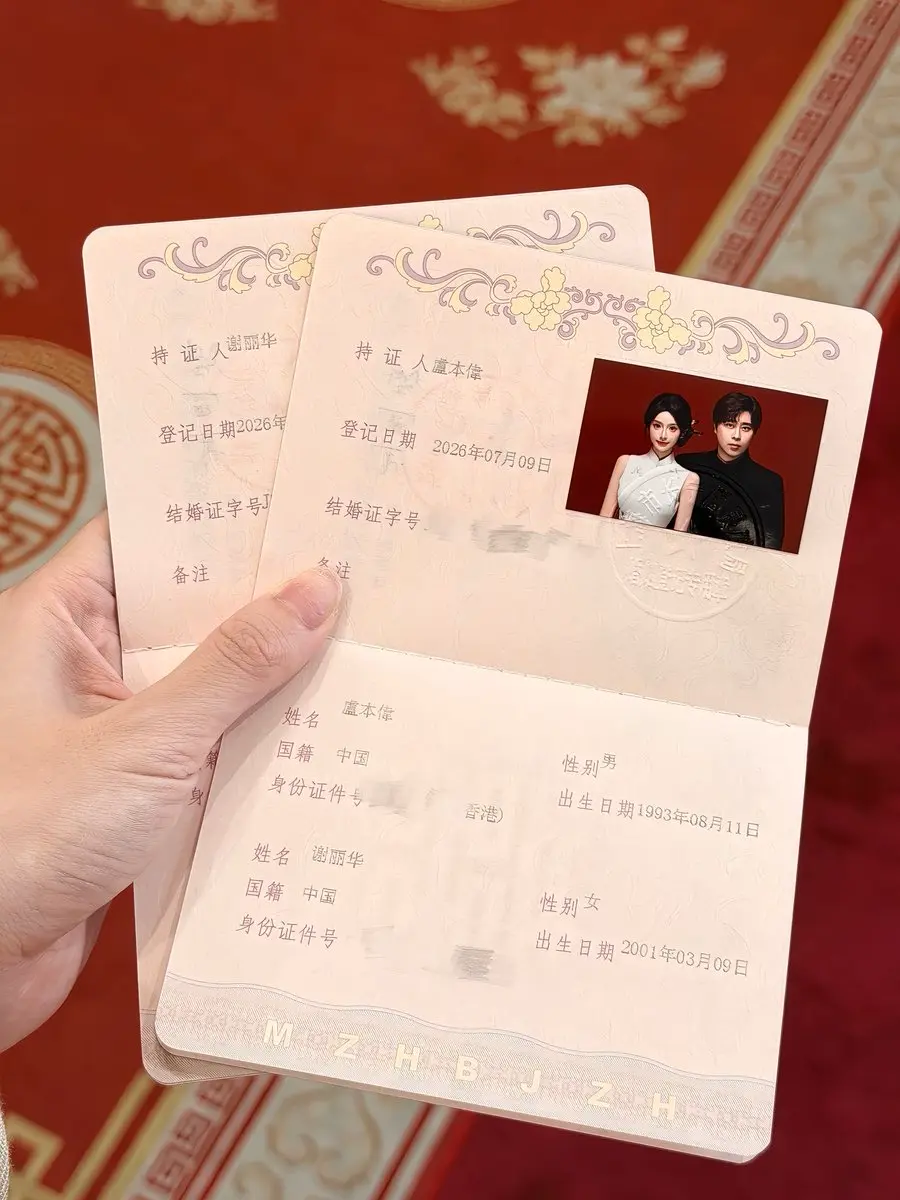 持证人谢丽华
登记日期2026年
结婚证字号J
备注
持证人盧本偉
登记日期 2026年07月09日
结婚证字号
备注
姓名 盧本偉
国籍 中国 性别男
身份证件号 香港) 出生日期1993年08月11日
姓名 谢丽华
国籍 中国 性别女
身份证件号 出生日期2001年03月09日
籍
身
MZHBJZH